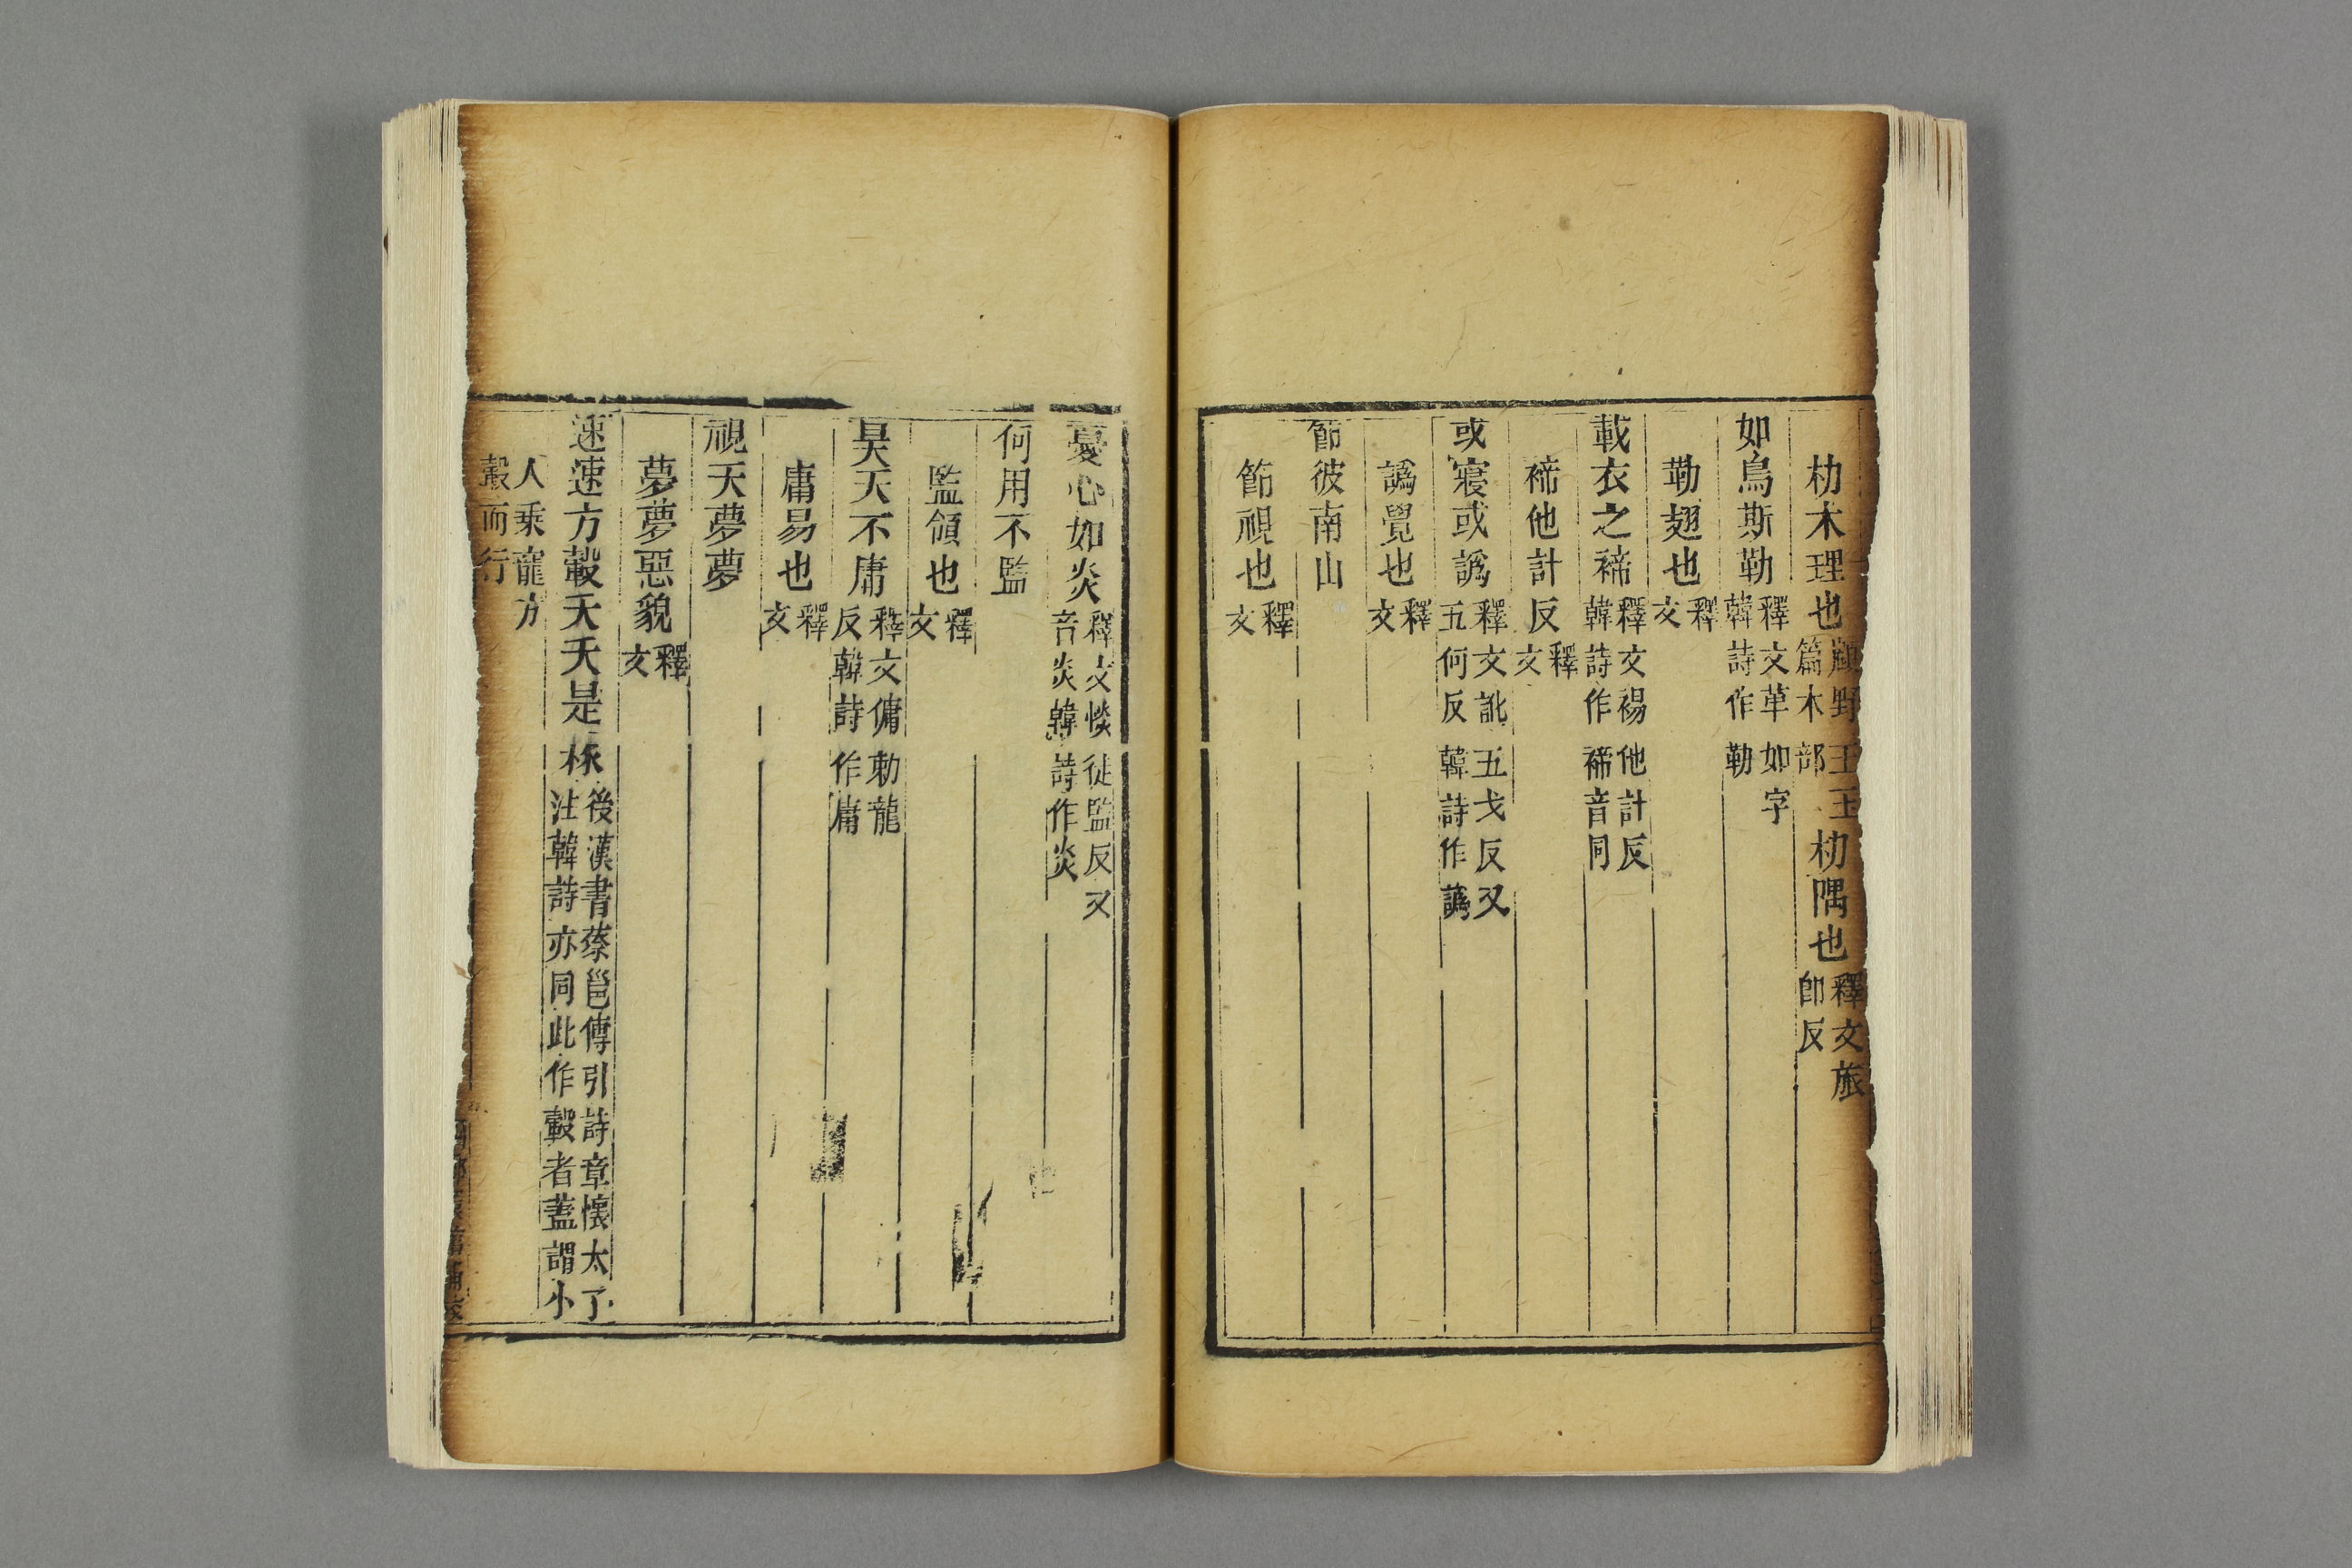 朸木理也顧野王玉篇木部朸隅也釋文旅卽反
如鳥斯勒釋文革如字韓詩作勒
勒翅也釋文
載衣之禘釋文裼他計反韓詩作禘音同
禘他計反釋文
或寢或譌釋文訛五戈反又五何反韓詩作譌
譌覺也釋文
節彼南山
節視也釋文
憂心如炎釋文惔徒監反又音炎韓詩作炎
何用不監
監領也釋文
昊天不庸釋文傭勅龍反韓詩作庸
庸易也釋文
視天夢夢
夢夢惡貌釋文
速速方轂天夭是椓後漢書蔡邕傳引詩章懷太子注韓詩亦同此作轂者蓋謂小
人乘寵方轂而行